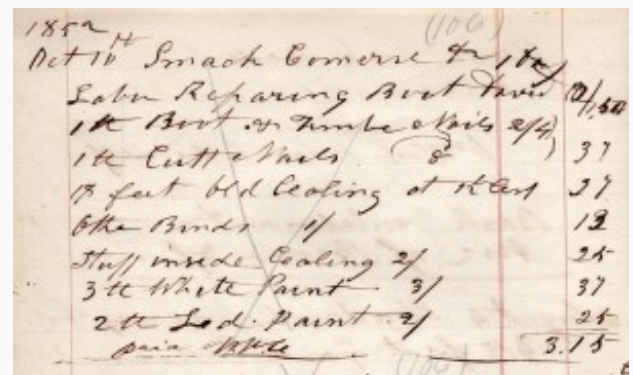 (106)
1852
Oct 10th Smack Comerse Dr 1 day
Labor Reparing Boat David 12/ 1,50
1 lb Boat & Timbe Nails 2/4
1 lb Cutt Nails 8 37
18 feet bld Cealing at 37
Othe Binds 1/ 12
Stuff inside Cealing 2/ 25
3 lb White Paint 3/ 37
2 lb Led. Paint 2/ 25
paid 3.15